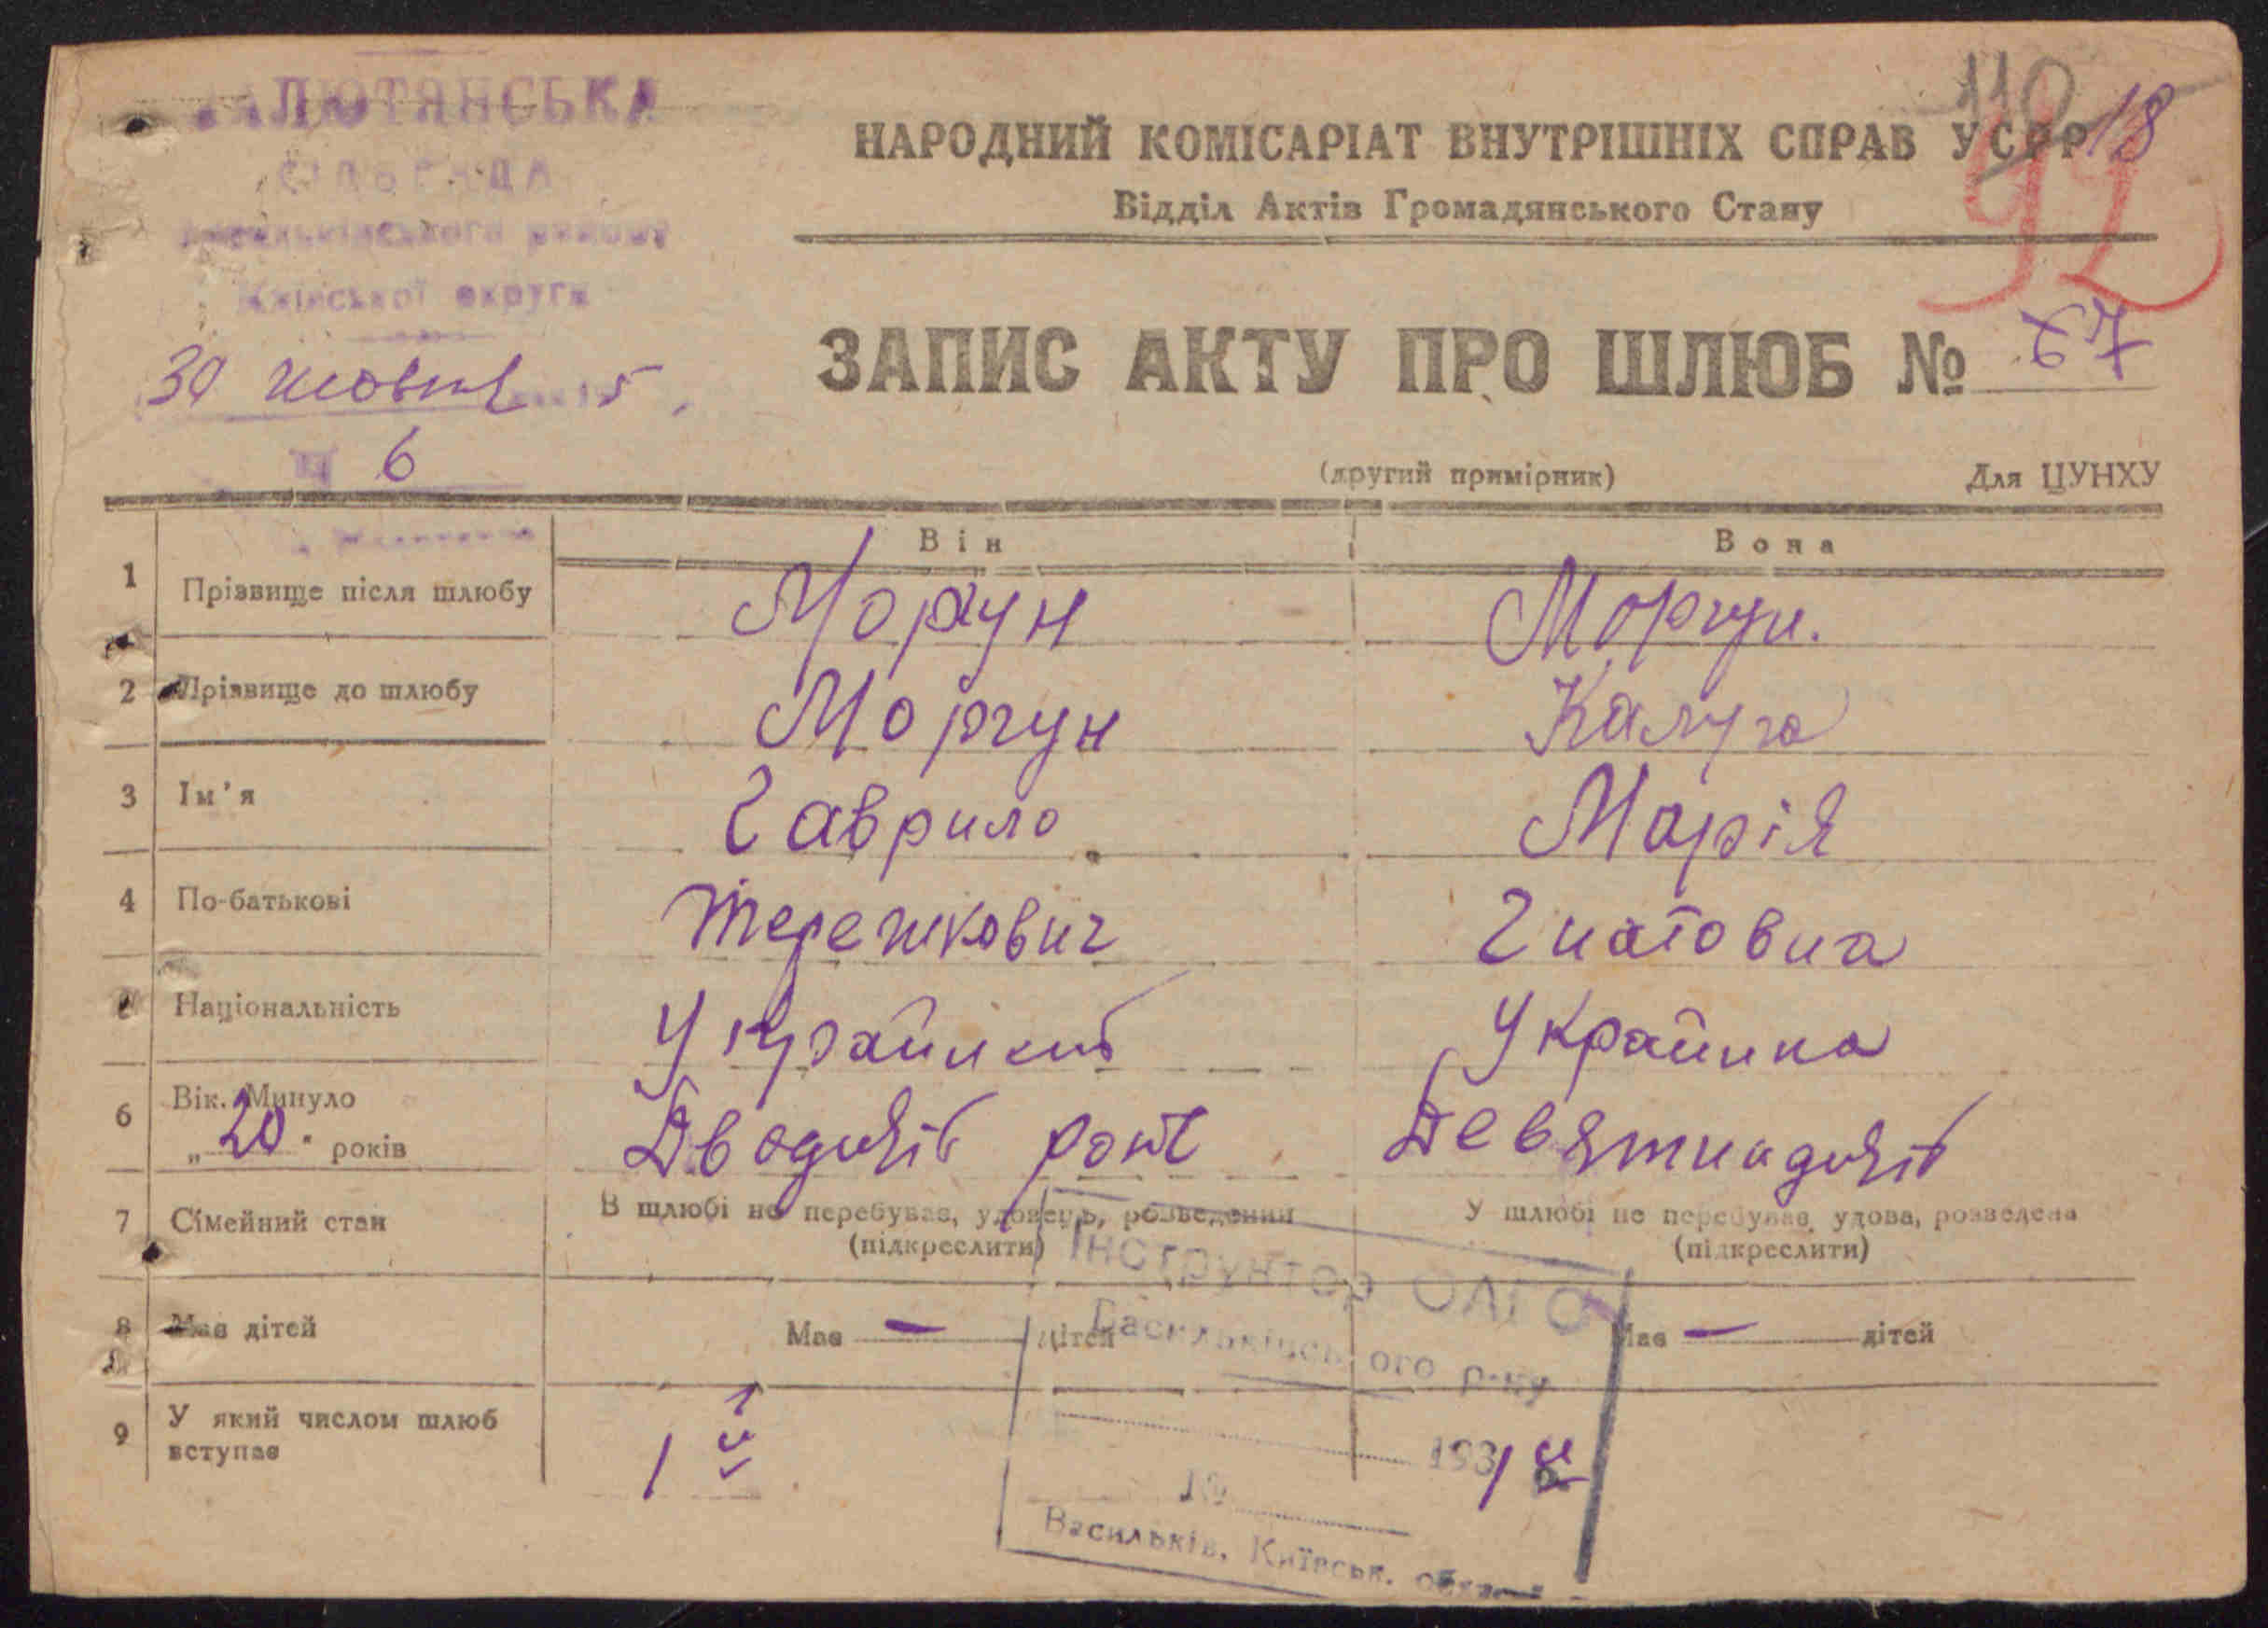 110
18
92
ЛЮТЯНСЬКА
СІЛЬРАДА
району
Київської округи
30 жовтня 5
6
НАРОДНИЙ КОМІСАРІАТ ВНУТРІШНІХ СПРАВ УСРР
Відділ Актів Громадянського Стану
ЗАПИС АКТУ ПРО ШЛЮБ № 67
(другий примірник) Для ЦУНХУ
Він Вона
1 Прізвище після шлюбу Моргун Моргун.
2 Прізвище до шлюбу Моргун Калуга
3 Ім'я Гаврило Марія
4 По-батькові Терешкович Гнатовна
Національність Українець Украинка
6 Вік. Минуло Двадцять років Девятнадцять
„20" років
7 Сімейний стан В шлюбі не перебував, удовець, розведений У шлюбі не перебувала, удова, розведена
(підкреслити) (підкреслити)
8 Має дітей Має — дітей Має — дітей
9 У який числом шлюб вступає 1й 1й
Інструктор
Васильківського р-ну
193
Васильків, Київськ. области